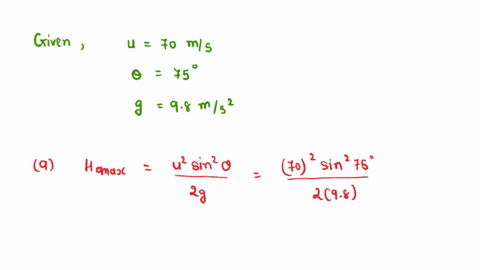 Given, u = 70 m/s
θ = 75°
g = 9.8 m/s²
(a) Hmax = u² sin² θ / 2g = (70)² sin² 75° / 2(9.8)